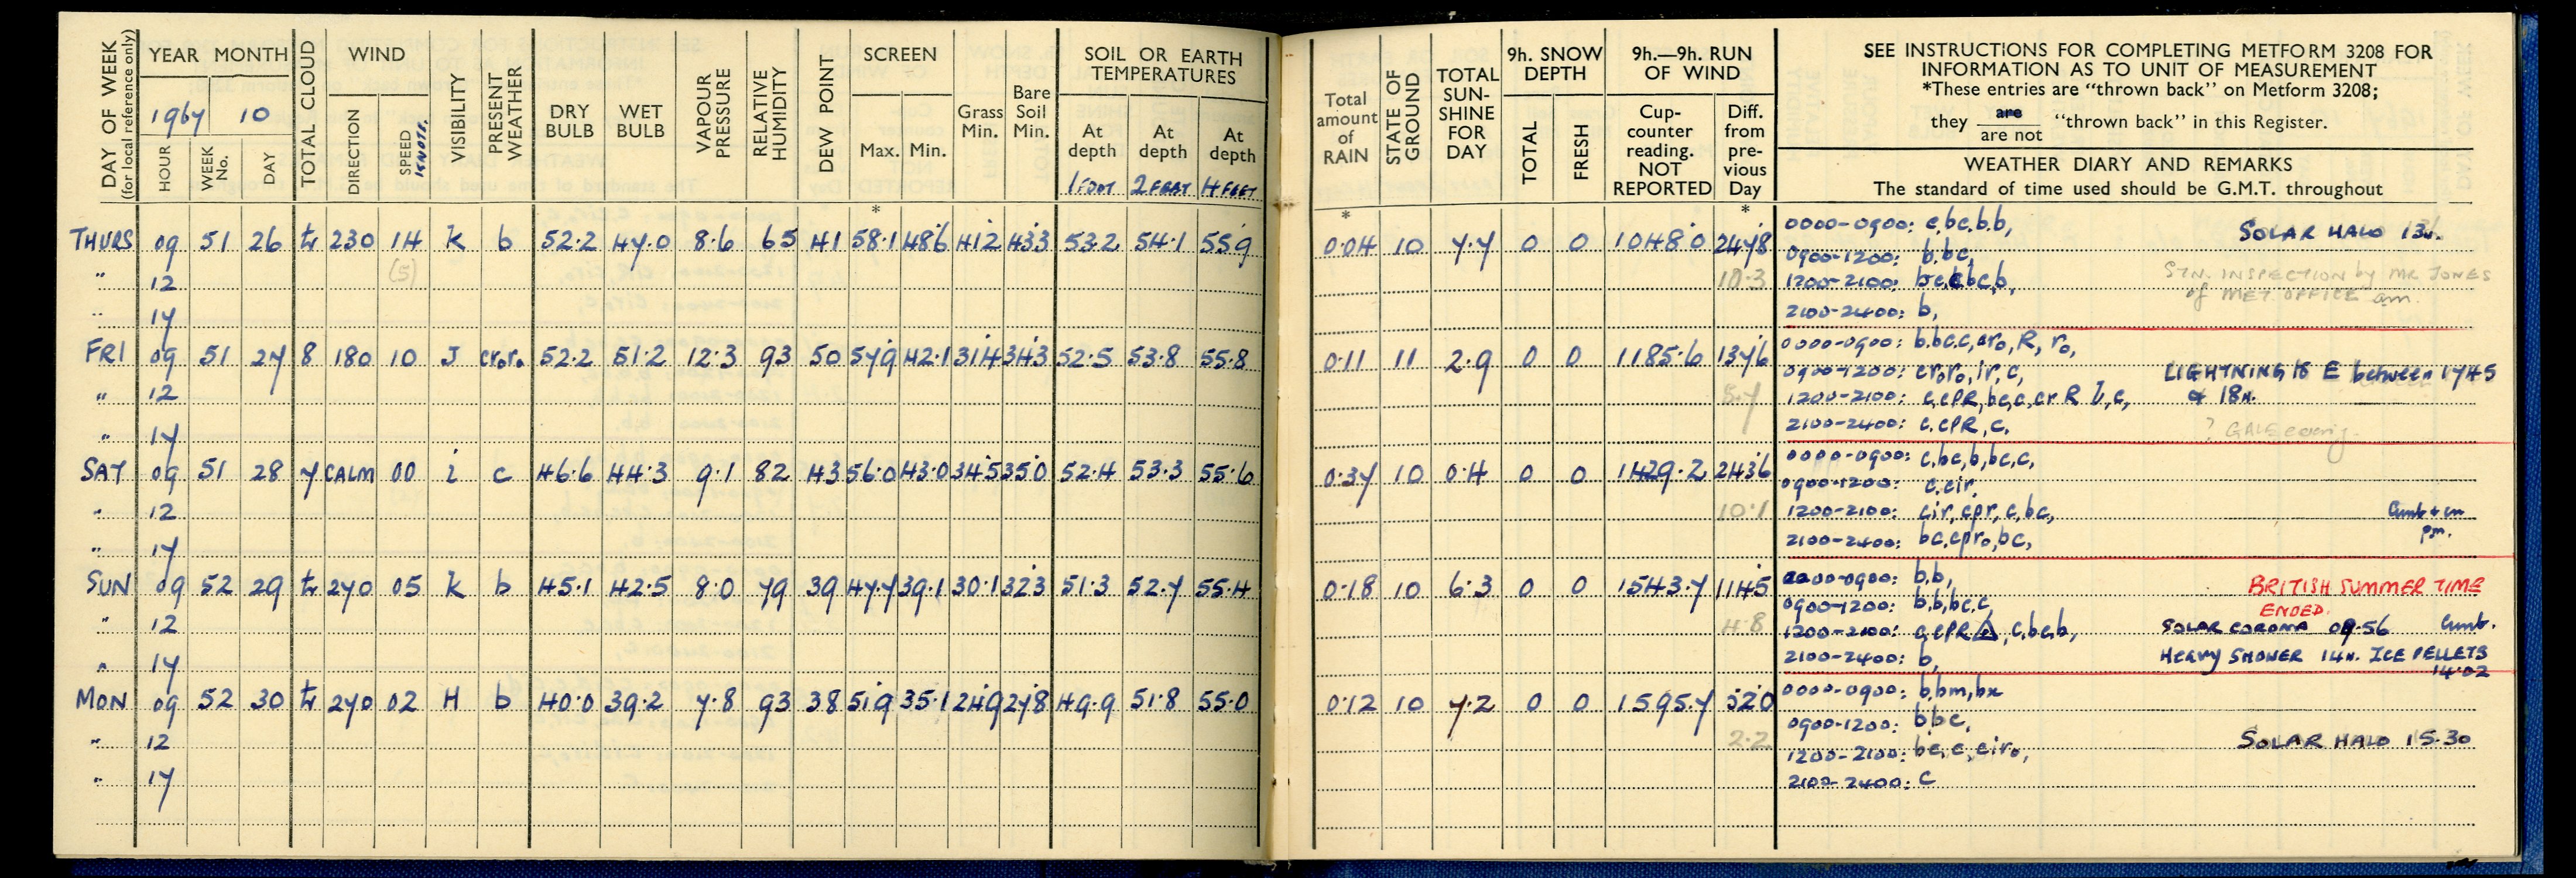 DAY OF WEEK (for local reference only) YEAR MONTH TOTAL CLOUD WIND VISIBILITY PRESENT WEATHER DRY BULB WET BULB VAPOUR PRESSURE RELATIVE HUMIDITY DEW POINT SCREEN Grass Min. Bare Soil Min. SOIL OR EARTH TEMPERATURES
1967 10
HOUR WEEK No. DAY DIRECTION SPEED KNOTS. Max. Min. At depth At depth At depth
1 FOOT 2 FEET 4 FEET
THURS 09 51 26 tr 230 14 K b 52.2 47.0 8.6 65 41 58.1 48.6 41.2 43.3 53.2 54.1 55.9
" 12 (5)
" 17
FRI 09 51 27 8 180 10 J cr₀r₀ 52.2 51.2 12.3 93 50 57.9 42.1 31.4 34.3 52.5 53.8 55.8
" 12
" 17
SAT 09 51 28 7 CALM 00 i c 46.6 44.3 9.1 82 43 56.0 43.0 34.5 35.0 52.4 53.3 55.6
" 12
" 17
SUN 09 52 29 tr 270 05 K b 45.1 42.5 8.0 79 39 47.7 39.1 30.1 32.3 51.3 52.7 55.4
" 12
" 17
MON 09 52 30 tr 270 02 H b 40.0 39.2 7.8 93 38 51.9 35.1 24.9 27.8 49.9 51.8 55.0
" 12
" 17
Total amount of RAIN STATE OF GROUND TOTAL SUN-SHINE FOR DAY 9h. SNOW DEPTH 9h.—9h. RUN OF WIND
TOTAL FRESH Cup-counter reading. NOT REPORTED Diff. from pre-vious Day
SEE INSTRUCTIONS FOR COMPLETING METFORM 3208 FOR
INFORMATION AS TO UNIT OF MEASUREMENT
*These entries are "thrown back" on Metform 3208;
they are are not "thrown back" in this Register.
WEATHER DIARY AND REMARKS
The standard of time used should be G.M.T. throughout
* * *
0.04 10 7.7 0 0 1048.0 247.8
10.3
0000-0900: c,bc,b,b, SOLAR HALO 13h.
0900-1200: b,bc,
1200-2100: bc,c,bc,b, STN. INSPECTION by MR JONES
of MET. OFFICE am.
2100-2400: b,
0.11 11 2.9 0 0 1185.6 137.6
5.7
0000-0900: b,bc,c,cr₀, R, r₀,
0900-1200: cr₀r₀,ir,c, LIGHTNING to E between 1745
1200-2100: c,cPR,bc,c,cr R, c, & 18h.
2100-2400: c,cPR,c. ? GALE evening.
0.37 10 0.4 0 0 1429.2 243.6
10.1
0000-0900: c,bc,b,bc,c,
0900-1200: c,cir,
1200-2100: cir,cpr,c,bc, Cumb + cu
2100-2400: bc,cpr₀,bc, pm.
0.18 10 6.3 0 0 1543.7 114.5
4.8
0000-0900: b,b, BRITISH SUMMER TIME
0900-1200: b,b,bc,c, ENDED.
1200-2100: c,cPR△,c,bc,b, SOLAR CORONA 09.56 Cumb.
2100-2400: b, HEAVY SHOWER 14h. ICE PELLETS
14.02
0.12 10 7.2 0 0 1595.7 52.0
2.2
0000-0900: b,bm,bx
0900-1200: b,bc,
1200-2100: bc,c,cir₀, SOLAR HALO 15.30
2100-2400: c